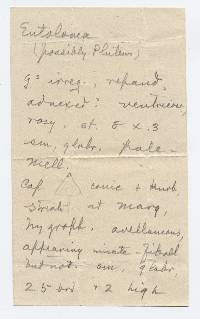 Entoloma
(possibly Pluteus)
g's irreg., repand,
adnexed, ventricose,
rosy. st. 8 x .3
sm, glabr. pale-
mell.
Cap conic + umb
striat. at marg,
hygroph. avellaneous,
appearing minute-fibrill
but not. sm, glabr,
2.5 brd + 2 high